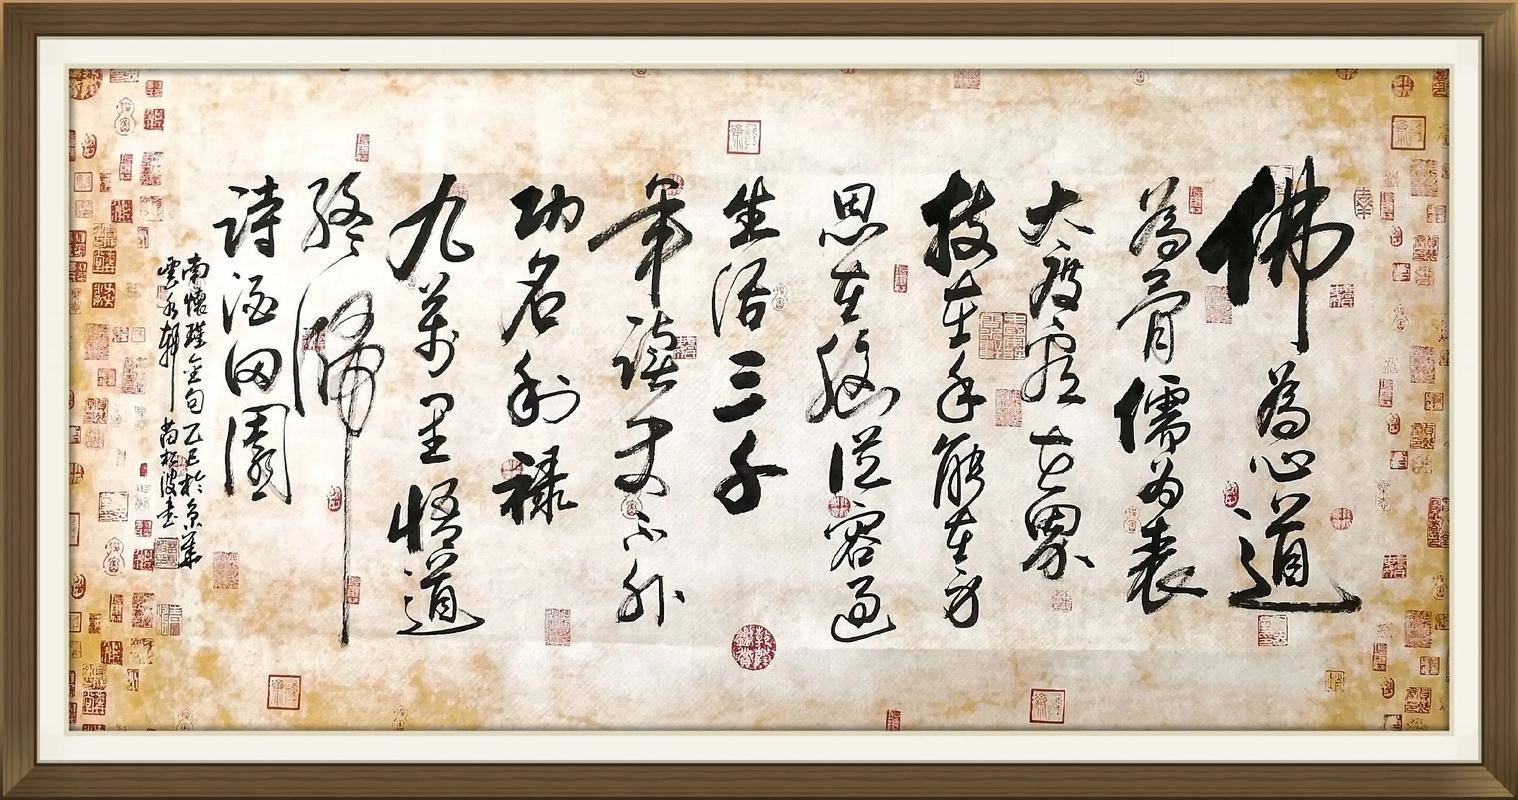 佛為心道
為骨儒為表
大度看世界
技在手能在身
思在腦從容過
生活三千
年讀史不外
功名利祿
九萬里悟道
終歸
詩酒田園
南懷瑾金句 乙巳於京華
雲水軒 苗 波書